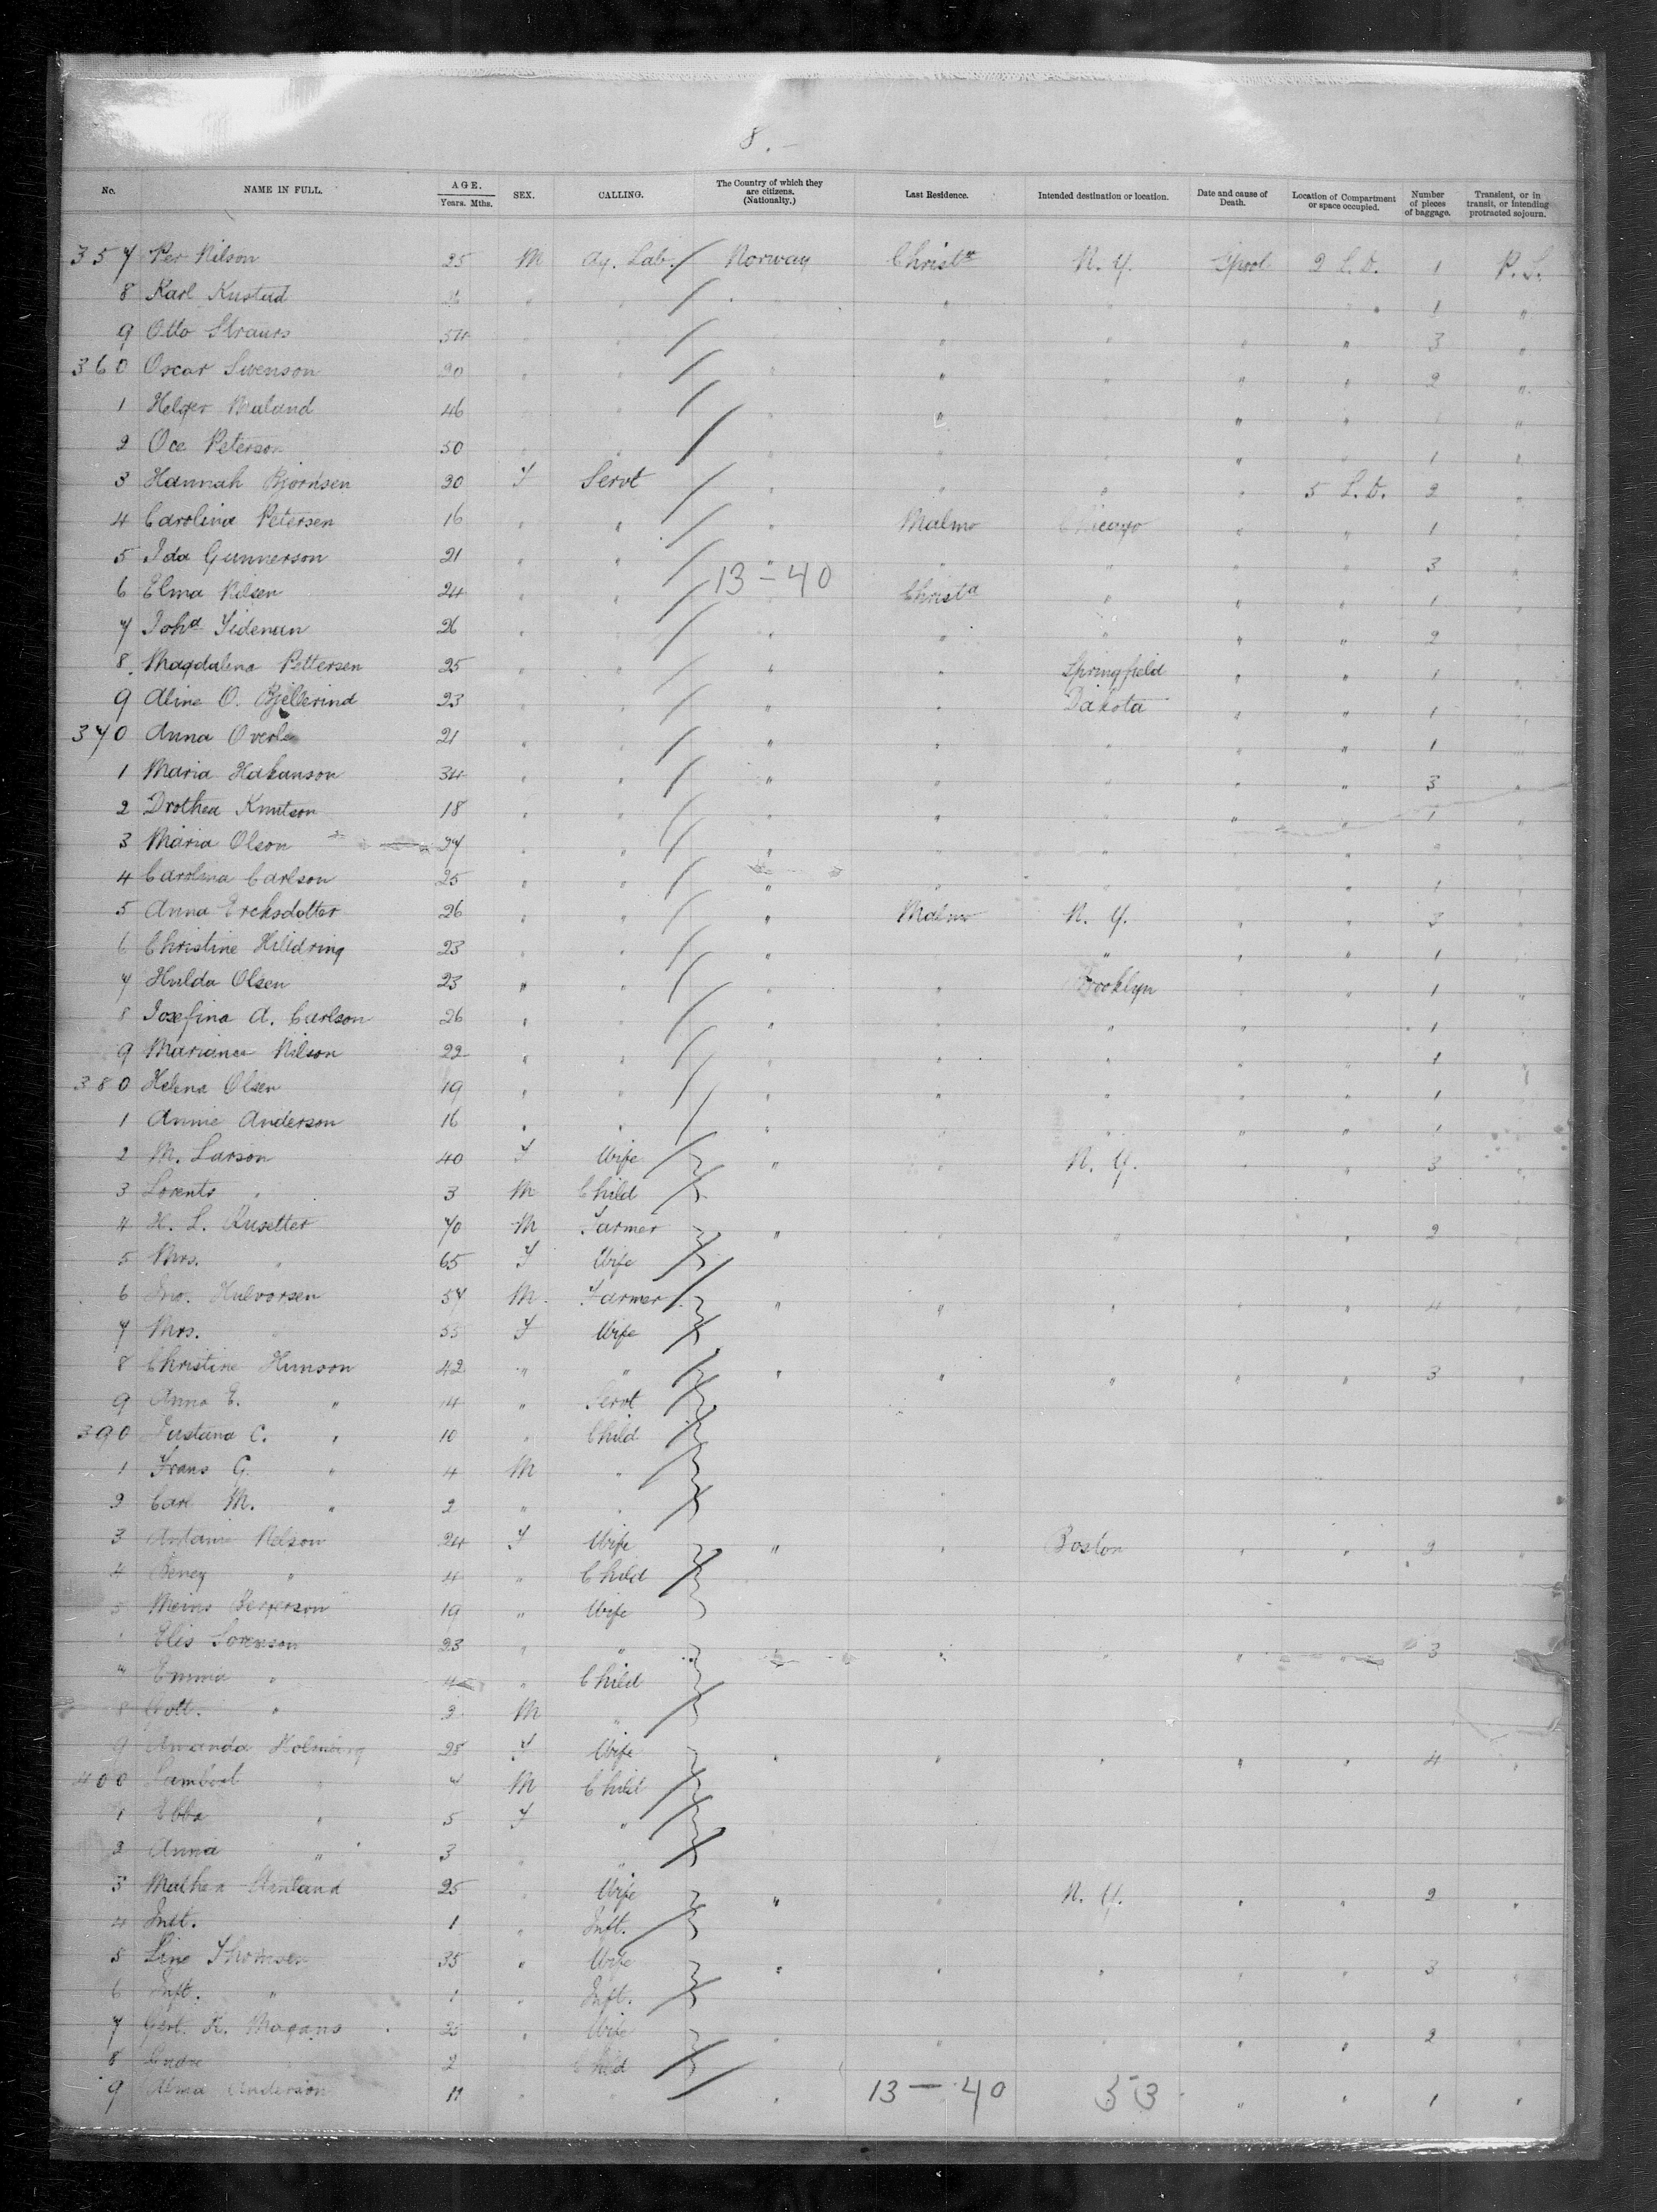 8. –
No. NAME IN FULL. AGE. Years. Mths. SEX. CALLING. The Country of which they are citizens. (Nationality.) Last Residence. Intended destination or location. Date and cause of Death. Location of Compartment or space occupied. Number of pieces of baggage. Transient, or in transit, or intending protracted sojourn.
357 Per Nilson 25 M Ag. Lab. Norway Christa N. Y. Lpool 2 L. D. 1 P. S.
8 Karl Kustad 1 "
9 Otto Straurs 54 " " 3 "
360 Oscar Swenson " " " " 2 "
1 Helger Maland 46 " " " "
2 Oce Peterson 50 " 1 "
3 Hannah Bjornsen F Servt " " " 5 L. D. 2 "
4 Carolina Petersen 16 " " " Malmo Chicago " " 1 "
5 Ida Gunnerson 21 " " " " " " " 3 "
6 Elma Nilsen 24 " " 13 – 40 Christa " " " 1 "
7 Joha 26 " " " " " " 2 "
8 Magdalena Pettersen 25 " " " " Springfield " " 1 "
9 Aline O. 23 " " " " Dakota " " 1 "
370 Anna 21 " " " " " " " 1 "
1 Maria Hakanson 34 " " " " " " " 3 "
2 Drothea Knutson 18 " " " " " " 1 "
3 Maria Olson " " " " " "
4 Carolina Carlson 25 " " " " " 1 "
5 Anna Ercksdotter 26 " " " Malmo N. Y. " " 3 "
6 Christine Hilldring 23 " " " " " " 1 "
7 Hulda Olsen 23 " " " " Brooklyn " 1 "
8 Josefina A. Carlson 26 " " " " " " 1 "
9 Mariana Nilson 22 " " " " " " " 1 "
380 Helena Olsen 19 " " " " " " " 1 "
1 Annie Anderson 16 " " " " " " 1 "
2 M. Larson 40 F Wife " " N. Y. " " 3 "
3 Lorents " 3 M Child
4 H. L. Rusetter 70 M Farmer " " " " 2 "
5 Mrs. " 65 F Wife
6 Jno. Halvorsen M Farmer " " " " 4 "
7 Mrs. " 55 F Wife
8 Christine Hanson 42 " " " " " " " 3 "
9 Anna E. " 14 " Servt
390 Justana C. " 10 " Child
1 Frans G. " 4 M "
2 Carl M. " 2 " "
3 Nelson 24 F Wife " " Boston " " 2 "
4 " 4 " Child
19 " Wife
Elis Sorenson 23 " " " " " " 3
7 Emma " 4 " Child
8 " 3 M "
9 Amanda Holmberg 28 F Wife " " " " " 4 "
400 " 7 M Child
1 Ebba " 5 F "
2 Anna " 3 " "
3 Mathea 25 Wife " " N. Y. " " 2 "
4 Inft. 1 " Inft.
5 Line Thomsen 35 " Wife " " " " " 3 "
6 Inft. " 1 " Inft.
7 K. 25 " Wife " " " " 2 "
8 2 Child
9 Alma Anderson 11 " " " 13 – 40 53 " " 1 "